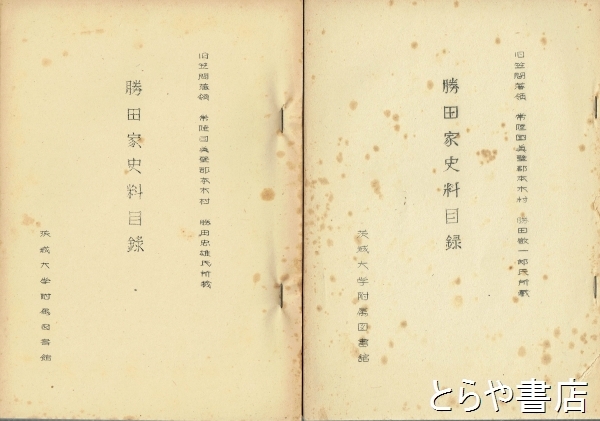 旧笠間藩領 常陸国真壁郡本木村 勝田忠雄氏所蔵
勝田家史料目録
茨城大学附属図書館
旧笠間藩領 常陸国真壁郡本木村 勝田敬一郎氏所蔵
勝田家史料目録
茨城大学附属図書館
とらや書店